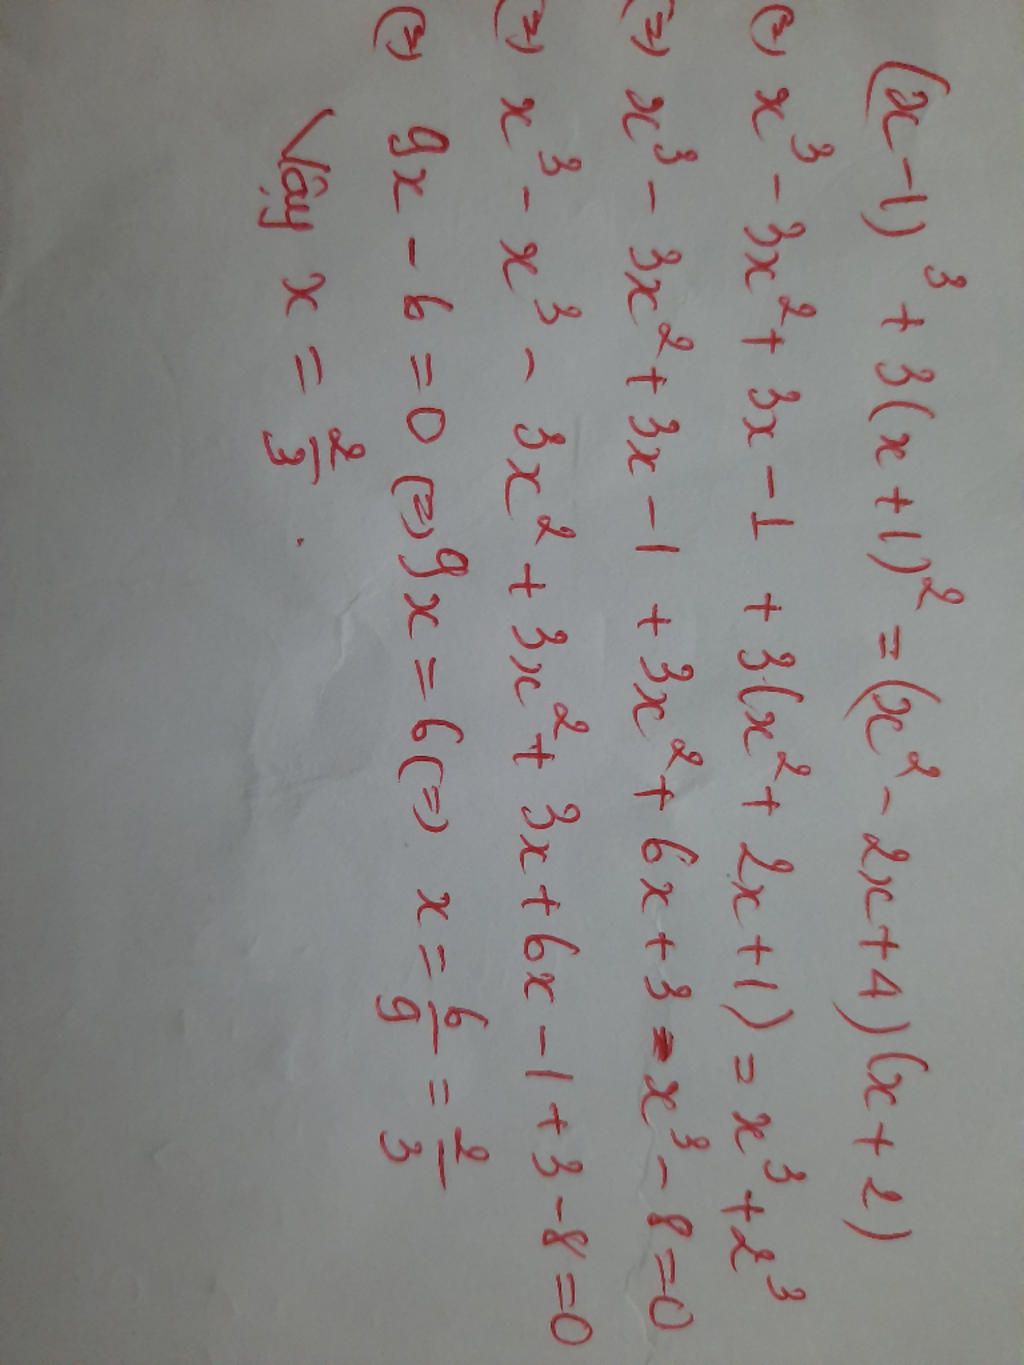 (x-1)³ + 3(x+1)² = (x² - 2x + 4)(x + 2)
(=) x³ - 3x² + 3x - 1 + 3(x² + 2x + 1) = x³ + 2³
(=) x³ - 3x² + 3x - 1 + 3x² + 6x + 3 - x³ - 8 = 0
(=) x³ - x³ - 3x² + 3x² + 3x + 6x - 1 + 3 - 8 = 0
(=) 9x - 6 = 0 (=) 9x = 6 (=) x = 6/9 = 2/3
Vậy x = 2/3 .